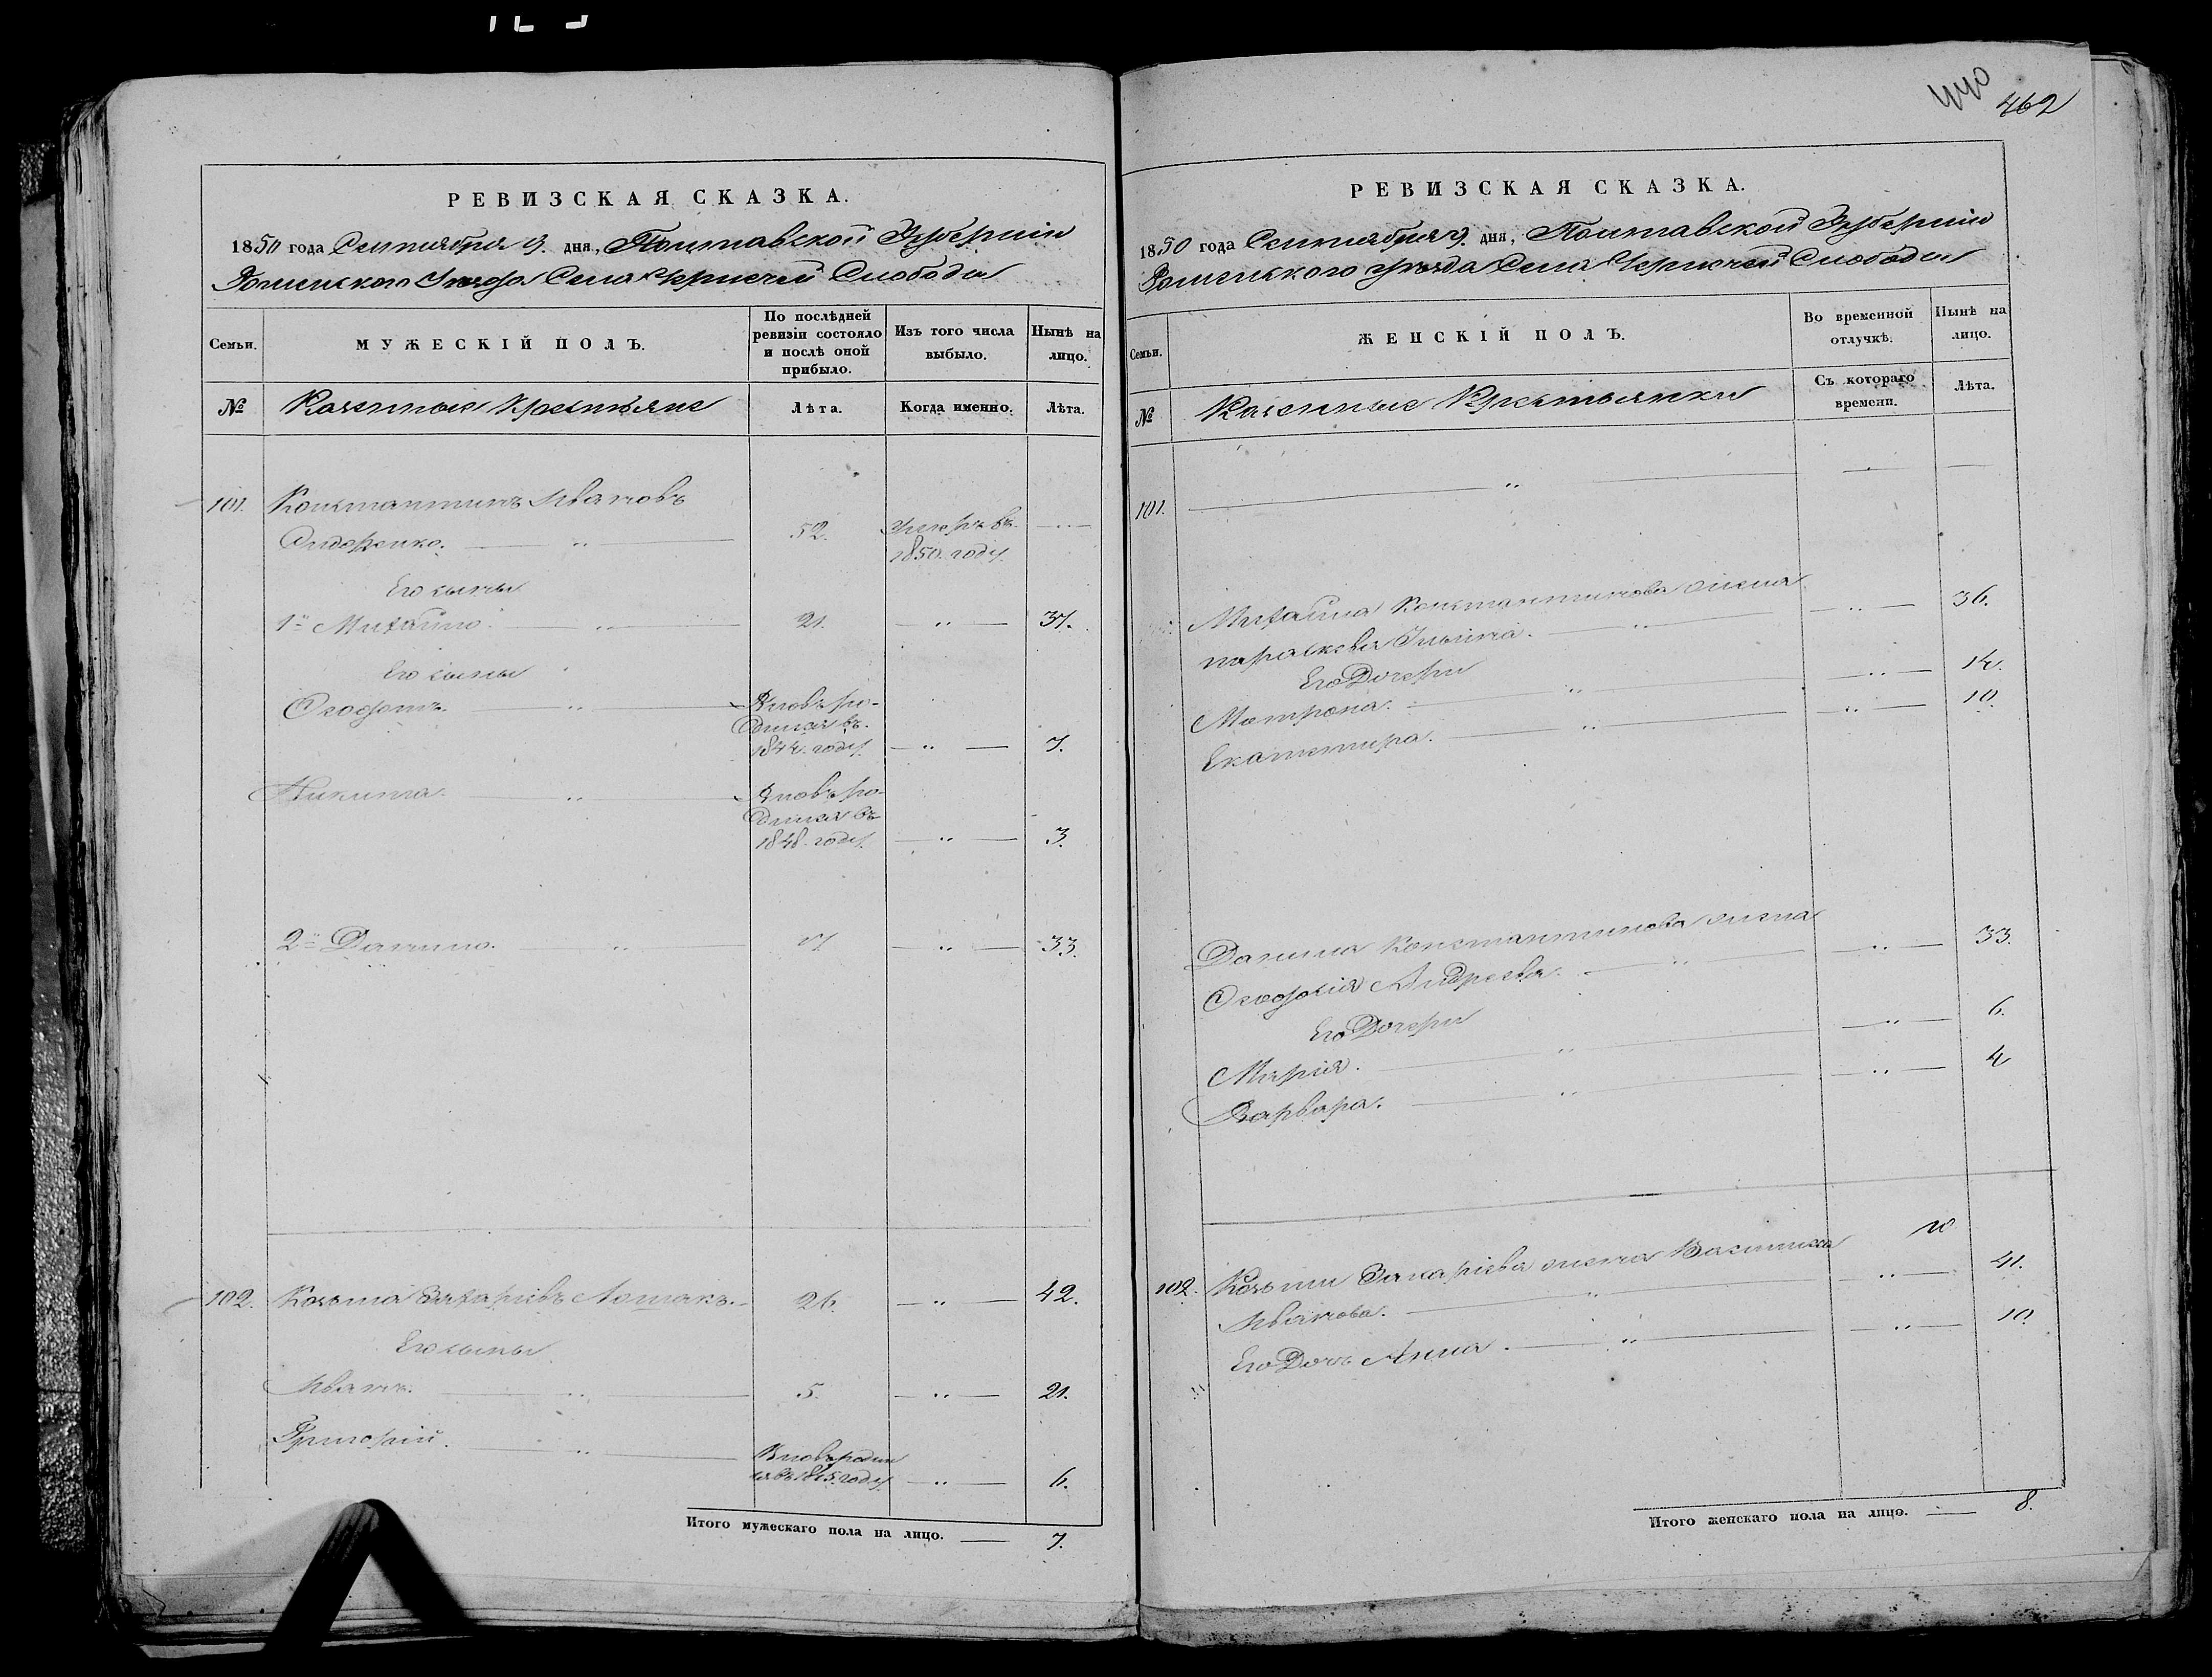 440
462
РЕВИЗСКАЯ СКАЗКА.
1850 года Сентября 9. дня, Полтавской Губерніи
Роменского Уезда Села Чернечей Слободы
Семьи.
МУЖЕСКІЙ ПОЛЪ.
По послѣдней ревизіи состояло и послѣ оной прибыло.
Изъ того числа выбыло.
Нынѣ на лицо.
№
Казенные Крестьяне
Лѣта.
Когда именно.
Лѣта.
101. Константинъ Ивановъ
Сидоренко. — „ — 52. Умеръ въ 1850. году — „ —
Его сыны
1й Михайло. — „ — 21. — „ — 37.
Его сыны
Феодотъ. — „ — Вновь родился въ 1844. году — „ — 7.
Никита. — „ — Вновь родился въ 1848. году — „ — 3.
2й Данило. — „ — 17 — „ — 33.
102. Козьма Захаріевъ Лошакъ. — 26. — „ — 42.
Его сыны
Иванъ. — „ — 5. — „ — 21.
Григорій. — „ — Вновь родился въ 1845. году — „ — 6.
Итого мужескаго пола на лицо. — 7.
РЕВИЗСКАЯ СКАЗКА.
1850 года Сентября 9. дня, Полтавской Губерніи
Роменьского уезда Села Чернечей Слободы
Семьи.
ЖЕНСКІЙ ПОЛЪ.
Во временной отлучкѣ.
Нынѣ на лицо.
№
Казенные Крестьянки
Съ котораго времени.
Лѣта.
101. — „ —
Михайла Константинова жена
параскева Ильина. — „ — 36.
Его Дочери
Мотрона. — „ — 14.
Екатерина. — „ — 10.
Данила Константинова жена
Феодосія Андреева. — „ — 33.
Его Дочери
Марія. — „ — 6.
Варвара. — „ — 4
102. Козьми Захаріева жена Василиса
Иванова. — „ — 41.
Его Дочь Анна. — „ — 10.
Итого женскаго пола на лицо. — 8.